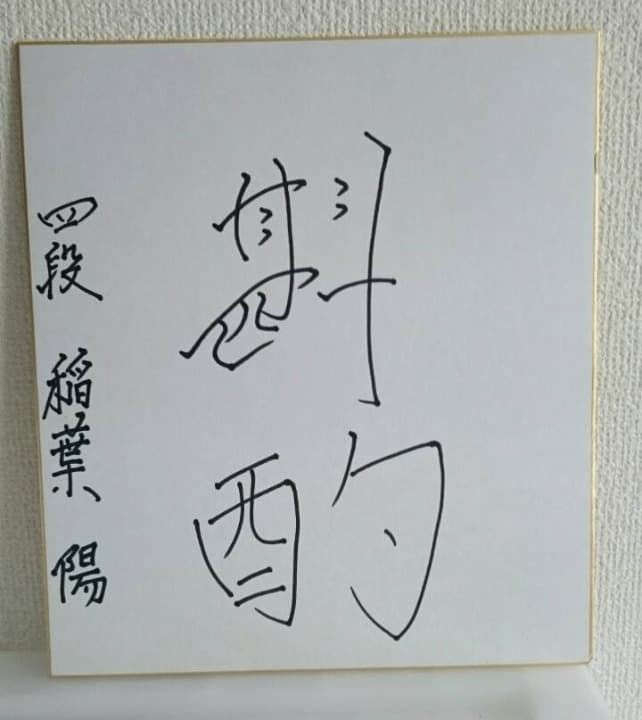 斟酌
四段 稲葉 陽